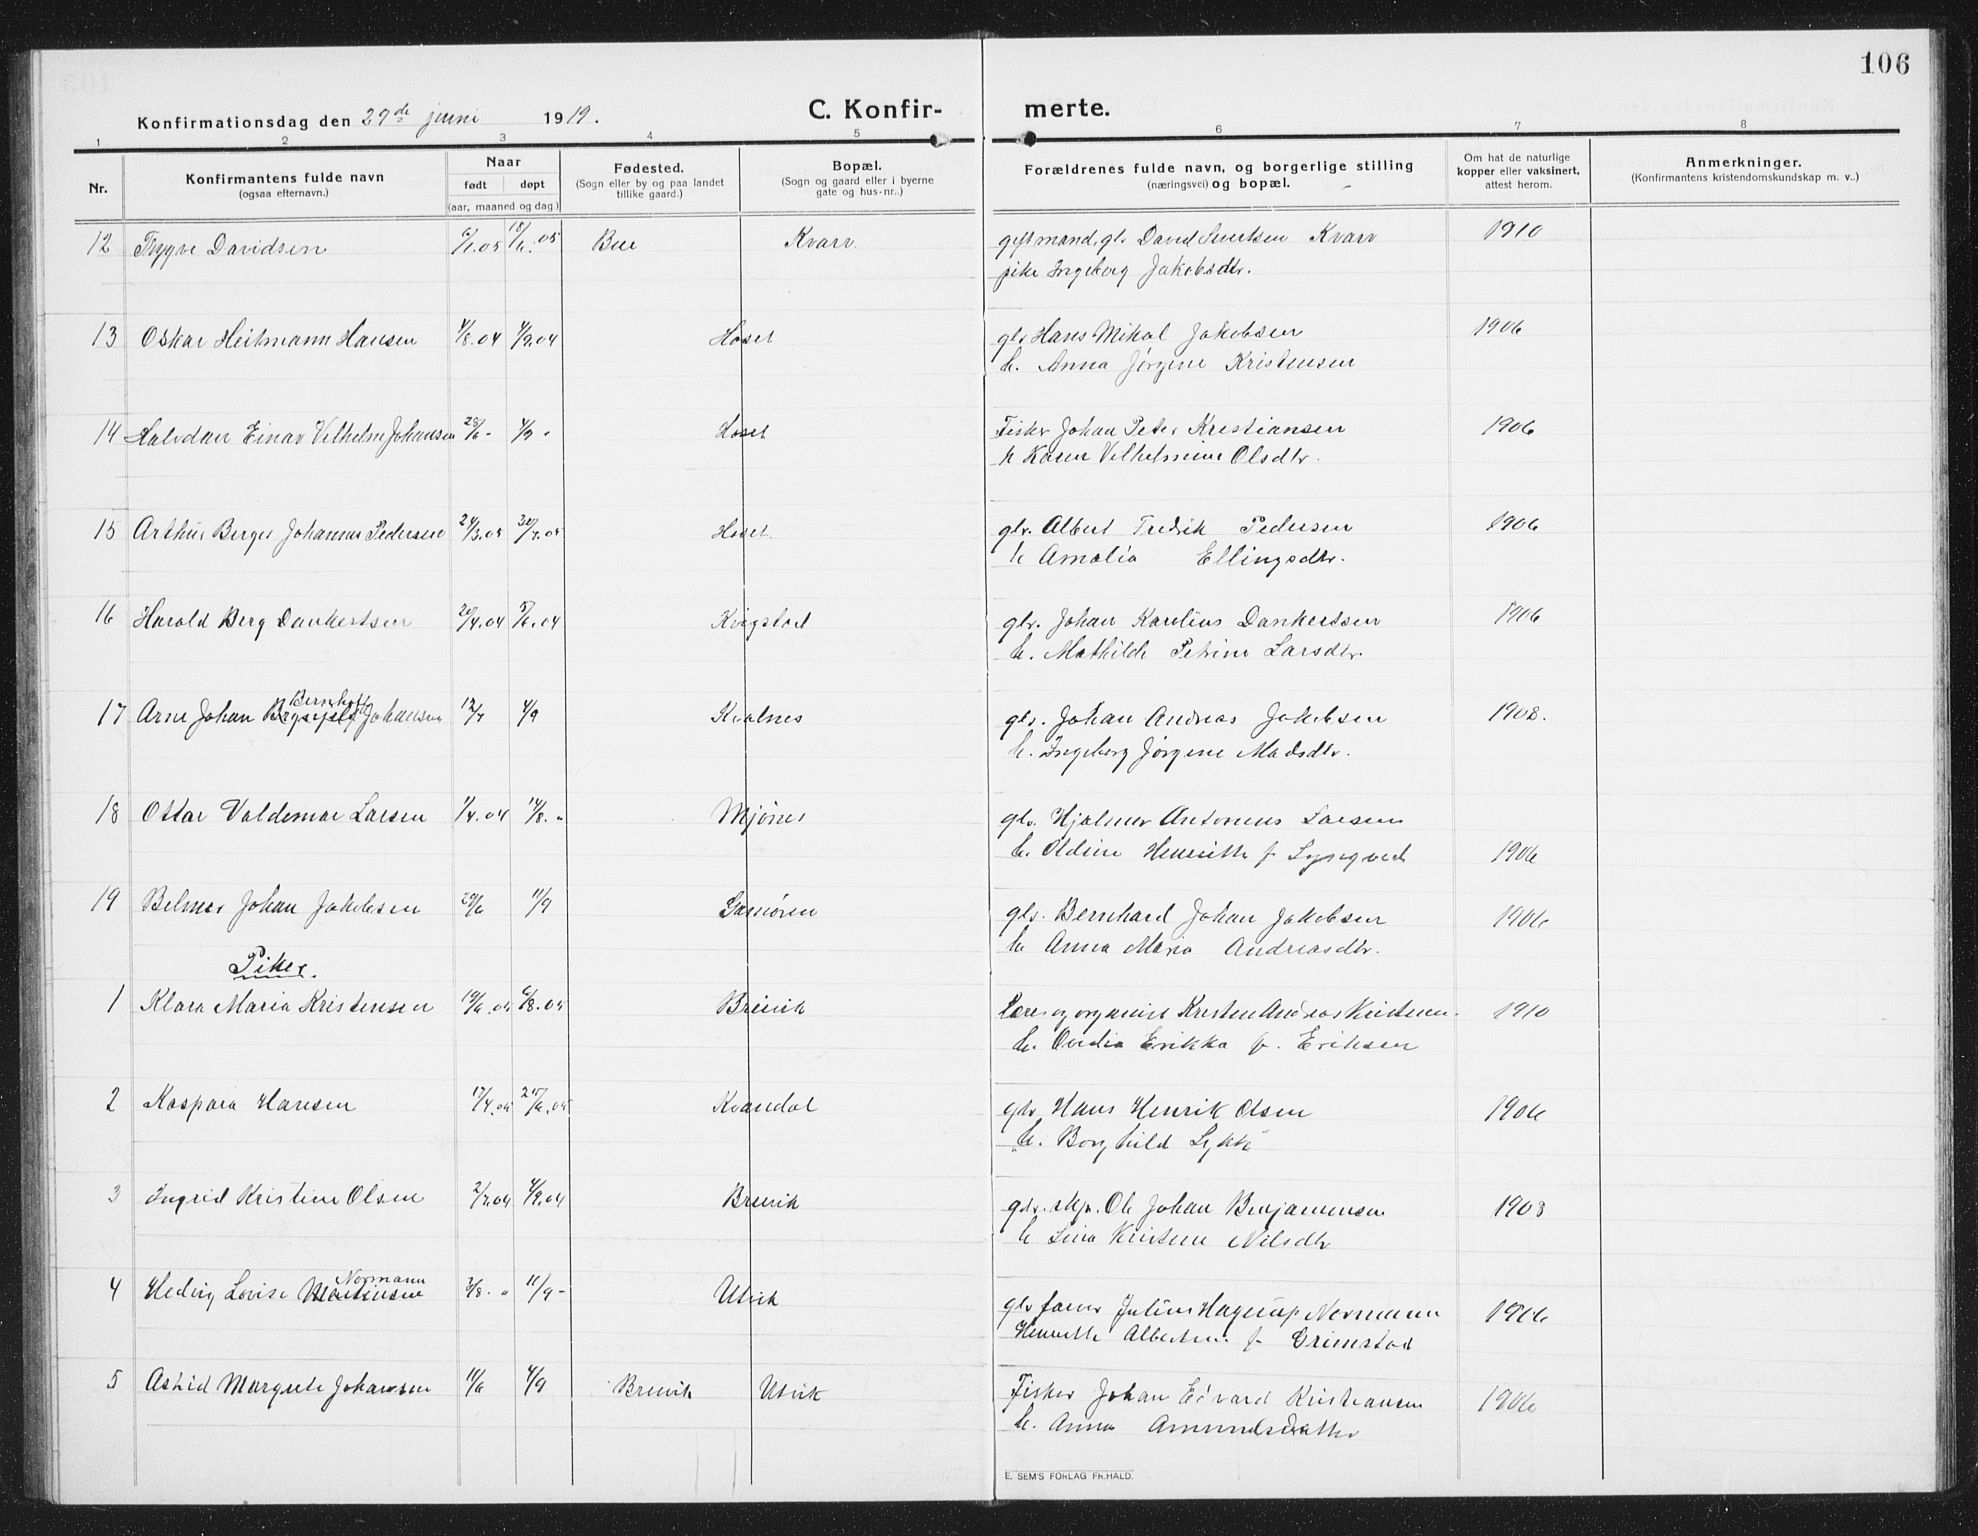 106
Konfirmationsdag den 29de juni 1919.
C. Konfirmerte.
1 2 3 4 5 6 7 8
Nr.
Konfirmantens fulde navn
(ogsaa efternavn.)
Naar
født døpt
(aar, maaned og dag.)
Fødested.
(Sogn eller by og paa landet
tillike gaard.)
Bopæl.
(Sogn og gaard eller i byerne
gate og hus-nr..)
Forældrenes fulde navn, og borgerlige stilling
(næringsvei) og bopæl.
Om hat de naturlige
kopper eller vaksinert,
attest herom.
Anmerkninger.
(Konfirmantens kristendomskundskap m. v..)
12 Trygve Davidsen 6/1.05 18/6.05 Bue Kvarv gift mand, glr David Sivertsen Kvarv 1910
pike Ingeborg Jakobsdtr.
13 Oskar Heitmann Hansen 4/8.04 4/9.04 Hoset glr Hans Mikal Jakobsen 1906
h. Anna Jørgine Kristensen
14 Halvdan Einar Vilhelm Johansen 28/6 - 4/9 - Hoset Fisker Johan Peter Kristiansen 1906
h Karen Vilhelmine Olsdtr.
15 Arthur Berger Johannes Pedersen 24/3.05 30/7.05 Hoset glr. Albert Fredrik Pedersen 1906
h Amalia Ellingsdtr.
16 Harald Berg Dankertsen 20/4.04 5/6.04 Kvigstad glr. Johan Karelius Dankertsen 1906
h. Mathilde Petrine Larsdtr.
Bernhoft
17 Arne Johan Johansen 12/7 4/9 Kvalnes glr. Johan Andreas Jakobsen 1908.
h. Ingeborg Jørgine Madsdtr.
18 Ottar Valdemar Larsen 1/4.04 14/8. " Mjønes glr. Hjalmar Antonius Larsen
h. Oldine Henritte f Lyngved 1906
19 Belmar Johan Jakobsen 29/6 11/9 glr. Bernhard Johan Jakobsen 1906
h Anna Maria Andreasdtr.
Piker.
1 Klara Maria Kristensen 19/6.05 6/8.05 Breivik Lærer og organist Kristen Andreas Kristensen 1910
h. Ovidia Erikka f. Eriksen
2 Kaspara Hansen 17/4.05 25/6.05 Kvandal glr Hans Henrik Olsen 1906
h. Borghild Lykke
3 Ingrid Kristine Olsen 2/7.04 4/9.04 Breivik gdr. skp. Ole Johan Benjaminsen 1908
h Lina Kristine Nilsdtr
Normann
4 Hedvig Lovise Martinsen 3/8 - " 11/9 - Utvik glr farver Julius Hagerup Normann 1906
Henritte Albertine f Grimstad
5 Astrid Margrete Johansen 11/6 4/9 Breivik Utvik Fisker Johan Edvard Kristiansen 1906
h. Anna Amundsdatter
E. SEM'S FORLAG FR.HALD.